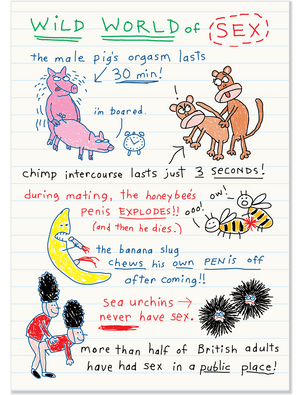 WiLD WORLD of SEX
the male pig's orgasm lasts
30 min!
i'm bored.
chimp intercourse lasts just 3 SECONDS!
during mating, the honeybee's
penis EXPLODES!!
(and then he dies.)
ooo!
ow!
the banana slug
chews his own PENiS off
after coming!!
Sea urchins →
never have sex.
more than half of British adults
have had sex in a public place!